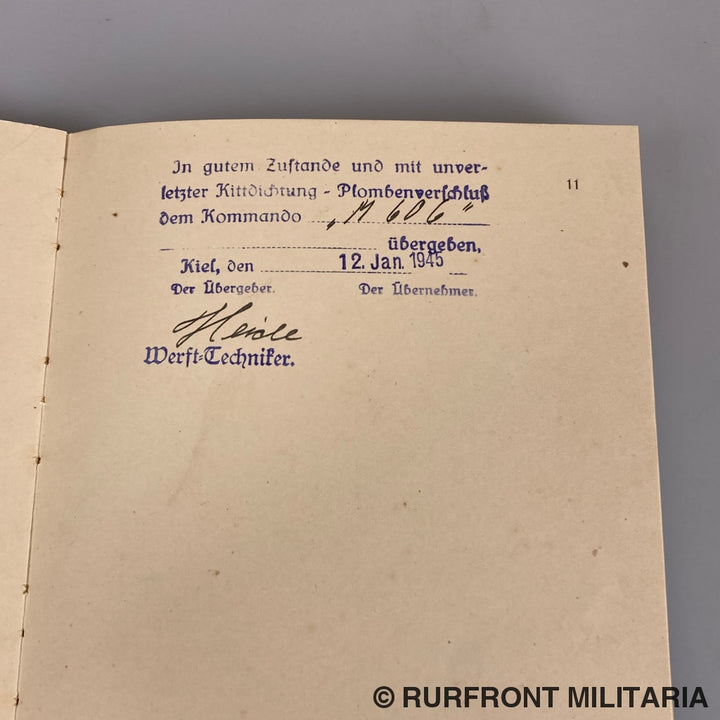 In gutem Zustande und mit unver-
letzter Kittdichtung - Plombenverschluß
dem Kommando „M 606"
übergeben,
Kiel, den 12. Jan. 1945
Der Übergeber. Der Übernehmer.
Heide
Werft-Techniker.
11
© RURFRONT MILITARIA